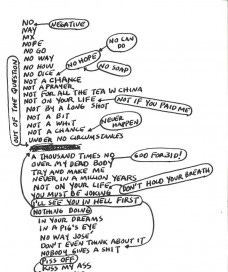 NO
NEGATIVE
NAY
NIX
NOPE
NO CAN DO
NO GO
NO WAY
NO HOW
NO HOPE
NO DICE
NO SOAP
NOT A CHANCE
NOT A PRAYER
NOT FOR ALL THE TEA IN CHINA
NOT ON YOUR LIFE
NOT IF YOU PAID ME
NOT BY A LONG SHOT
NOT A BIT
NOT A WHIT
NEVER HAPPEN
NOT A CHANCE
UNDER NO CIRCUMSTANCES
OUT OF THE QUESTION
A THOUSAND TIMES NO
GOD FORBID!
OVER MY DEAD BODY
TRY AND MAKE ME
NEVER IN A MILLION YEARS
NOT ON YOUR LIFE
DON'T HOLD YOUR BREATH
YOU MUST BE JOKING
I'LL SEE YOU IN HELL FIRST
NOTHING DOING
IN YOUR DREAMS
IN A PIG'S EYE
NO WAY JOSE
DON'T EVEN THINK ABOUT IT
NOBODY GIVES A SHIT
PISS OFF
KISS MY ASS